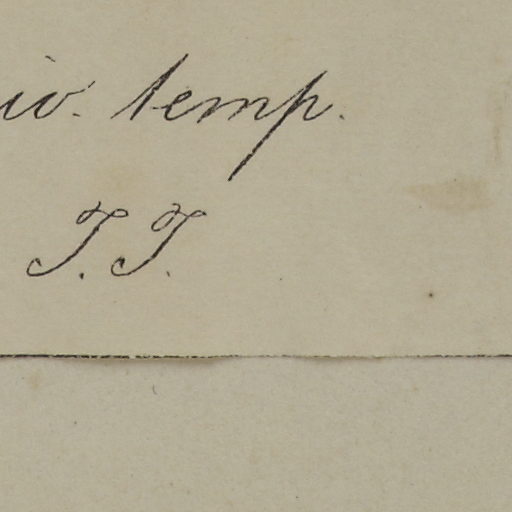 iv. temp.
T. T.